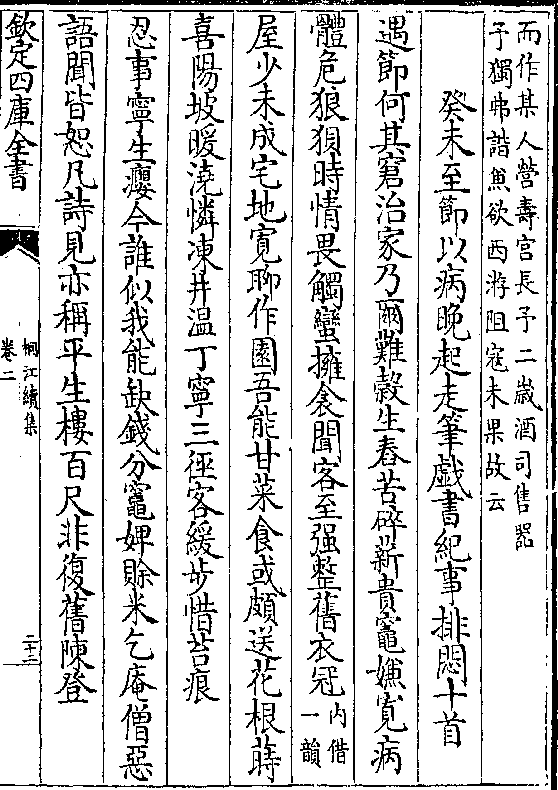 而作某人營壽宮長予二嵗酒司售器
予獨弗詣兠欲西㳺阻寇未果故云
癸未至節以病晚起走筆戲書紀事排悶十首
遇節何其窘治家乃爾難榖生舂苦碎薪貴竈嫌寛病
體危狼狽時情畏觸蠻擁衾聞客至强整舊衣冠内借
一韻
屋少未成宅地寛聊作園吾能甘菜食或頗送花根蒔
喜陽坡暖澆憐凍井温丁寧三徑客緩步惜苔痕
忍事寧生癭今誰似我能缺錢分竈婢賒米乞庵僧惡
語聞皆恕凡詩見亦稱平生樓百尺非復舊陳登
欽定四庫全書
桐江續集
卷二
二十二